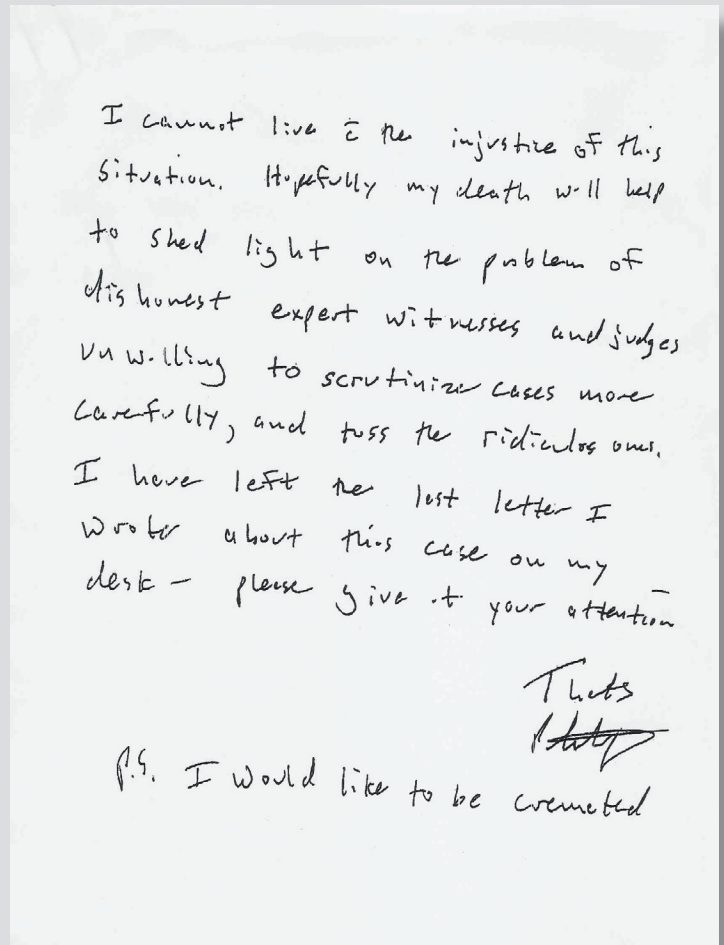 I cannot live c̄ the injustice of this
situation. Hopefully my death will help
to shed light on the problem of
dishonest expert witnesses and judges
unwilling to scrutinize cases more
carefully, and toss the ridiculos ones.
I have left the last letter I
wrote about this case on my
desk – please give it your attention
P.S. I would like to be cremated